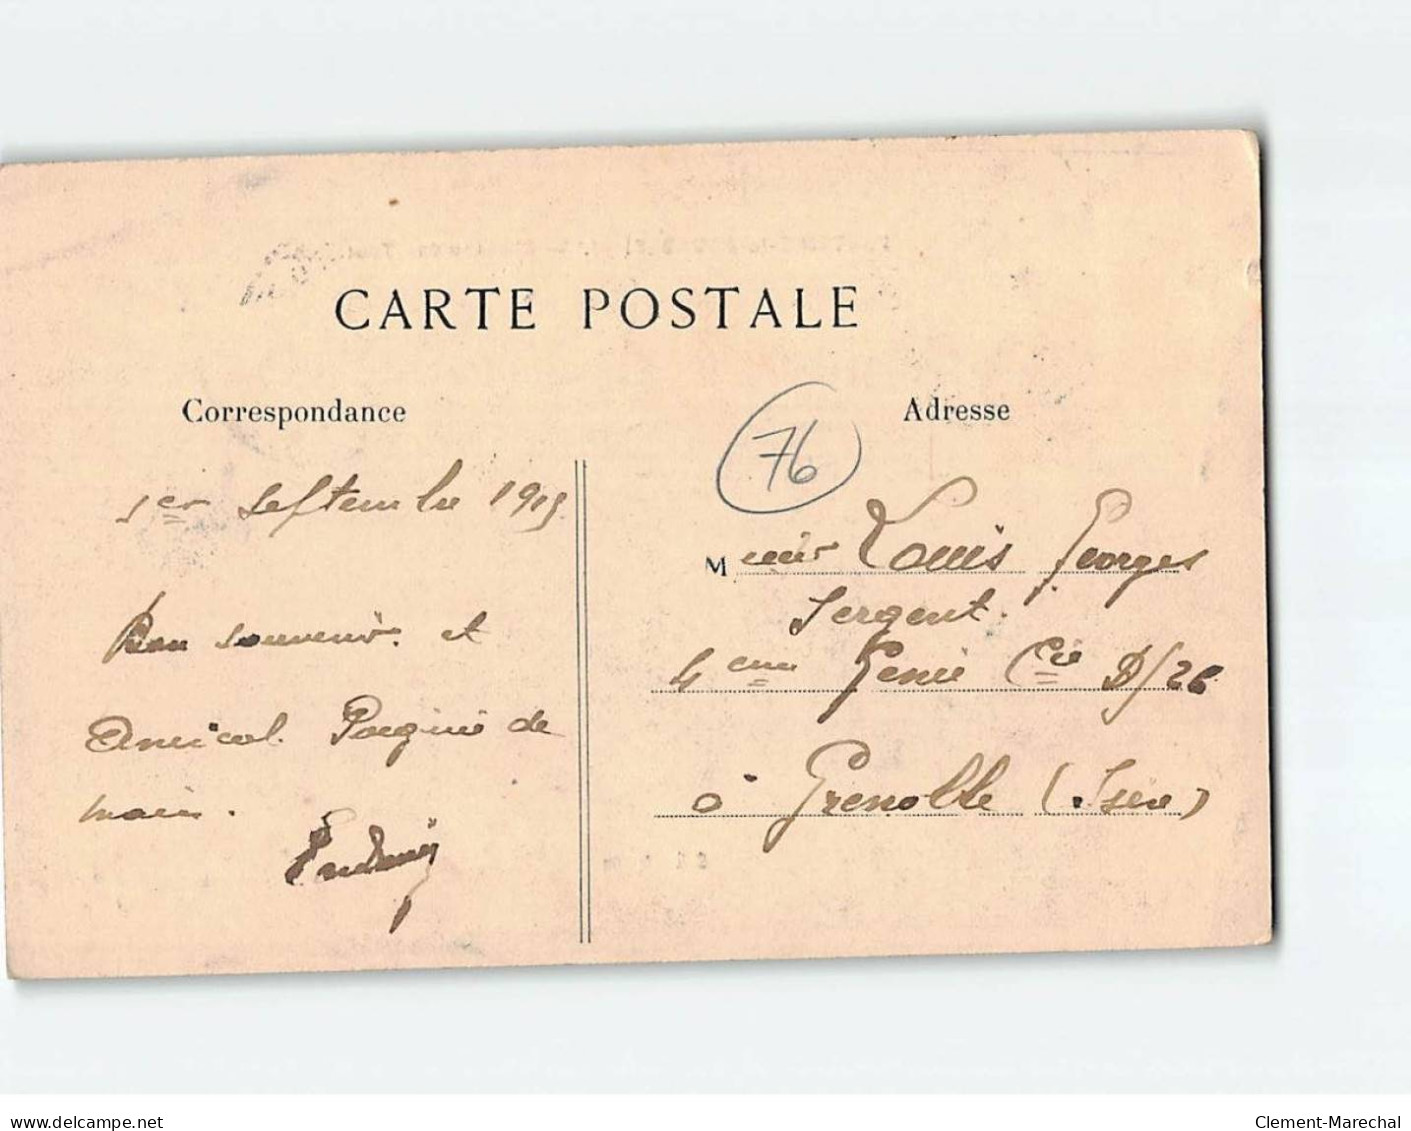 CARTE POSTALE
Correspondance
Adresse
76
1er Septembre 1915
Bon souvenir et
Amical Poignée de
main.
Mcieur Louis Georges
Sergent.
4eme Genie Cie D/26
à Grenoble (Isère)
www.delcampe.net
Clement-Marechal